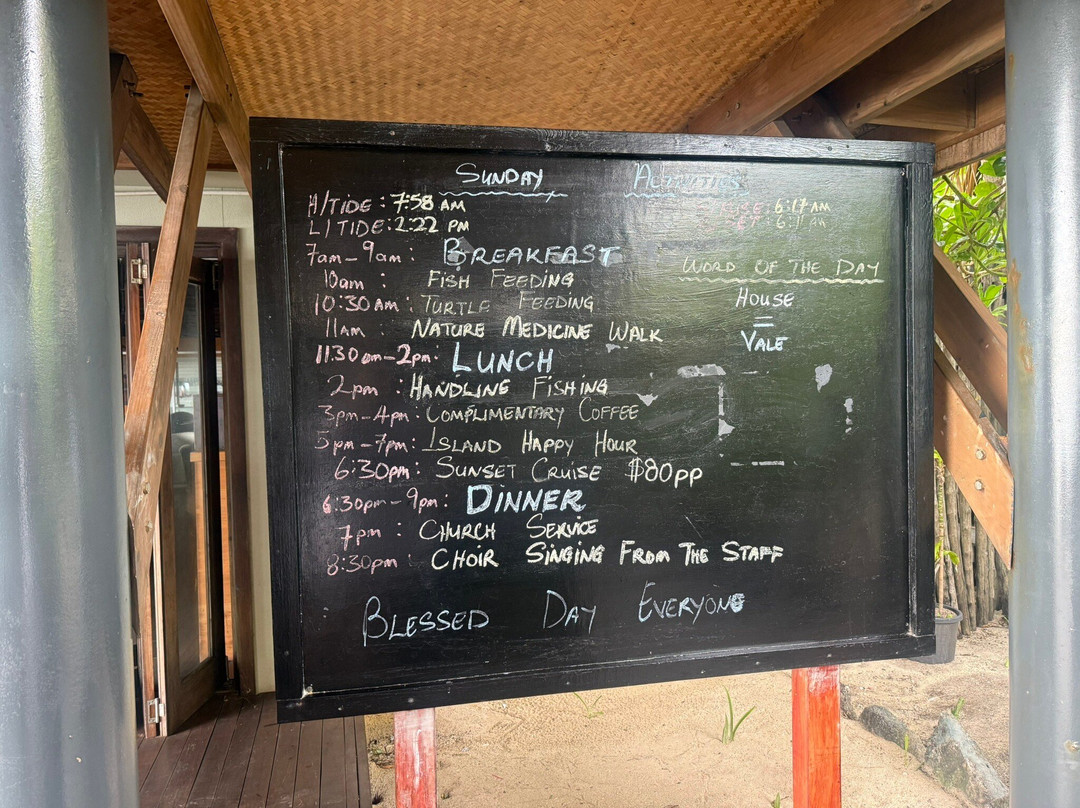 SUNDAY ACTIVITIES
H/TIDE : 7:58 AM
L/TIDE : 2:22 PM
7am - 9am : BREAKFAST
10am : FISH FEEDING
10:30AM : TURTLE FEEDING
11AM : NATURE MEDICINE WALK
11:30am-2pm: LUNCH
2pm : HANDLINE FISHING
3pm-4pm : COMPLIMENTARY COFFEE
5pm-7pm: ISLAND HAPPY HOUR
6:30pm: SUNSET CRUISE $80pp
6:30pm-9pm: DINNER
7pm : CHURCH SERVICE
8:30pm : CHOIR SINGING FROM THE STAFF
BLESSED DAY EVERYONE
: 6:17 AM
WORD OF THE DAY
HOUSE
=
VALE